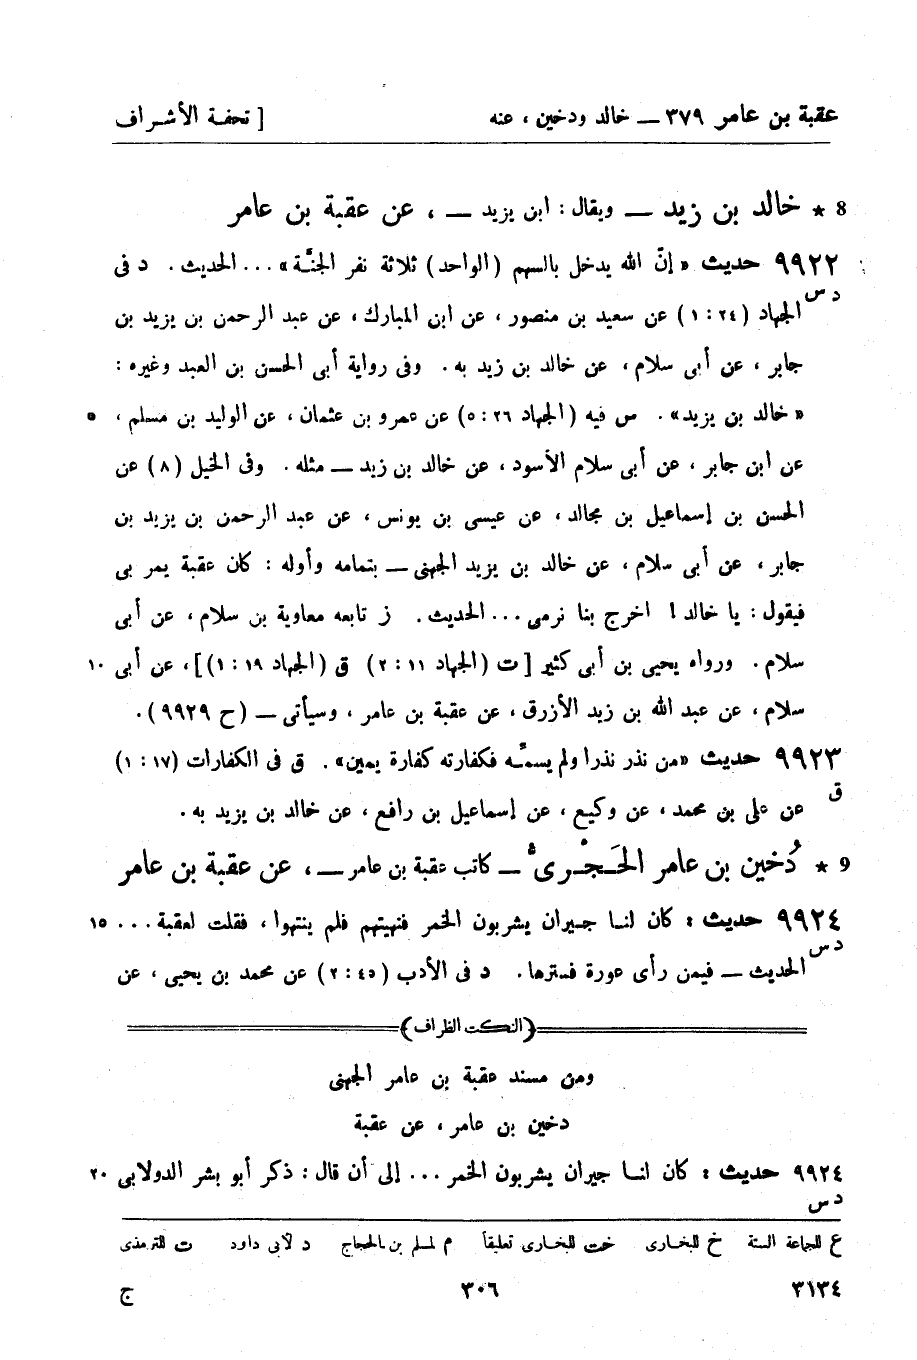 عقبة بن عامر ٣٧٩ — خالد ودخين ، عنه [ تحفة الأشراف
8 * خالد بن زيد — ويقال : ابن يزيد — ، عن عقبة بن عامر
٩٩٢٢ حديث «إنّ الله يدخل بالسهم (الواحد) ثلاثة نفر الجنّة» ... الحديث . د فى
د س
الجهاد (٢٤ : ١) عن سعيد بن منصور ، عن ابن المبارك ، عن عبد الرحمن بن يزيد بن
جابر ، عن أبى سلام ، عن خالد بن زيد به . وفى رواية أبى الحسن بن العبد وغيره :
«خالد بن يزيد» . س فيه (الجهاد ٢٦ : ٥) عن عمرو بن عثمان ، عن الوليد بن مسلم ، ٥
عن ابن جابر ، عن أبى سلام الأسود ، عن خالد بن زيد — مثله . وفى الخيل (٨) عن
الحسن بن إسماعيل بن مجالد ، عن عيسى بن يونس ، عن عبد الرحمن بن يزيد بن
جابر ، عن أبى سلام ، عن خالد بن يزيد الجهنى — بتمامه وأوله : كان عقبة يمر بى
فيقول : يا خالد ! اخرج بنا نرمى ... الحديث . ز تابعه معاوية بن سلام ، عن أبى
سلام . ورواه يحيى بن أبى كثير [ ت (الجهاد ١١ : ٢) ق (الجهاد ١٩ : ١)] ، عن أبى ١٠
سلام ، عن عبد الله بن زيد الأزرق ، عن عقبة بن عامر ، وسيأتى — (ح ٩٩٢٩) .
٩٩٢٣ حديث «من نذر نذرا ولم يسمّه فكفارته كفارة يمين» . ق فى الكفارات (١٧ : ١)
ق
عن على بن محمد ، عن وكيع ، عن إسماعيل بن رافع ، عن خالد بن يزيد به .
9 * دُخين بن عامر الحَجْرىّ — كاتب عقبة بن عامر — ، عن عقبة بن عامر
٩٩٢٤ حديث : كان لنا جيران يشربون الخمر فنهيتهم فلم ينتهوا ، فقلت لعقبة ... ١٥
د س
الحديث — فيمن رأى عورة فسترها . د فى الأدب (٤٥ : ٢) عن محمد بن يحيى ، عن
(النكت الظراف)
ومن مسند عقبة بن عامر الجهنى
دخين بن عامر ، عن عقبة
٩٩٢٤ حديث : كان لنا جيران يشربون الخمر ... إلى أن قال : ذكر أبو بشر الدولابى ٢٠
د س
ع للجماعة الستة خ للبخارى خت للبخارى تعليقاً م لمسلم بن الحجاج د لأبى داود ت للترمذى
٣١٣٤ ٣٠٦ ج